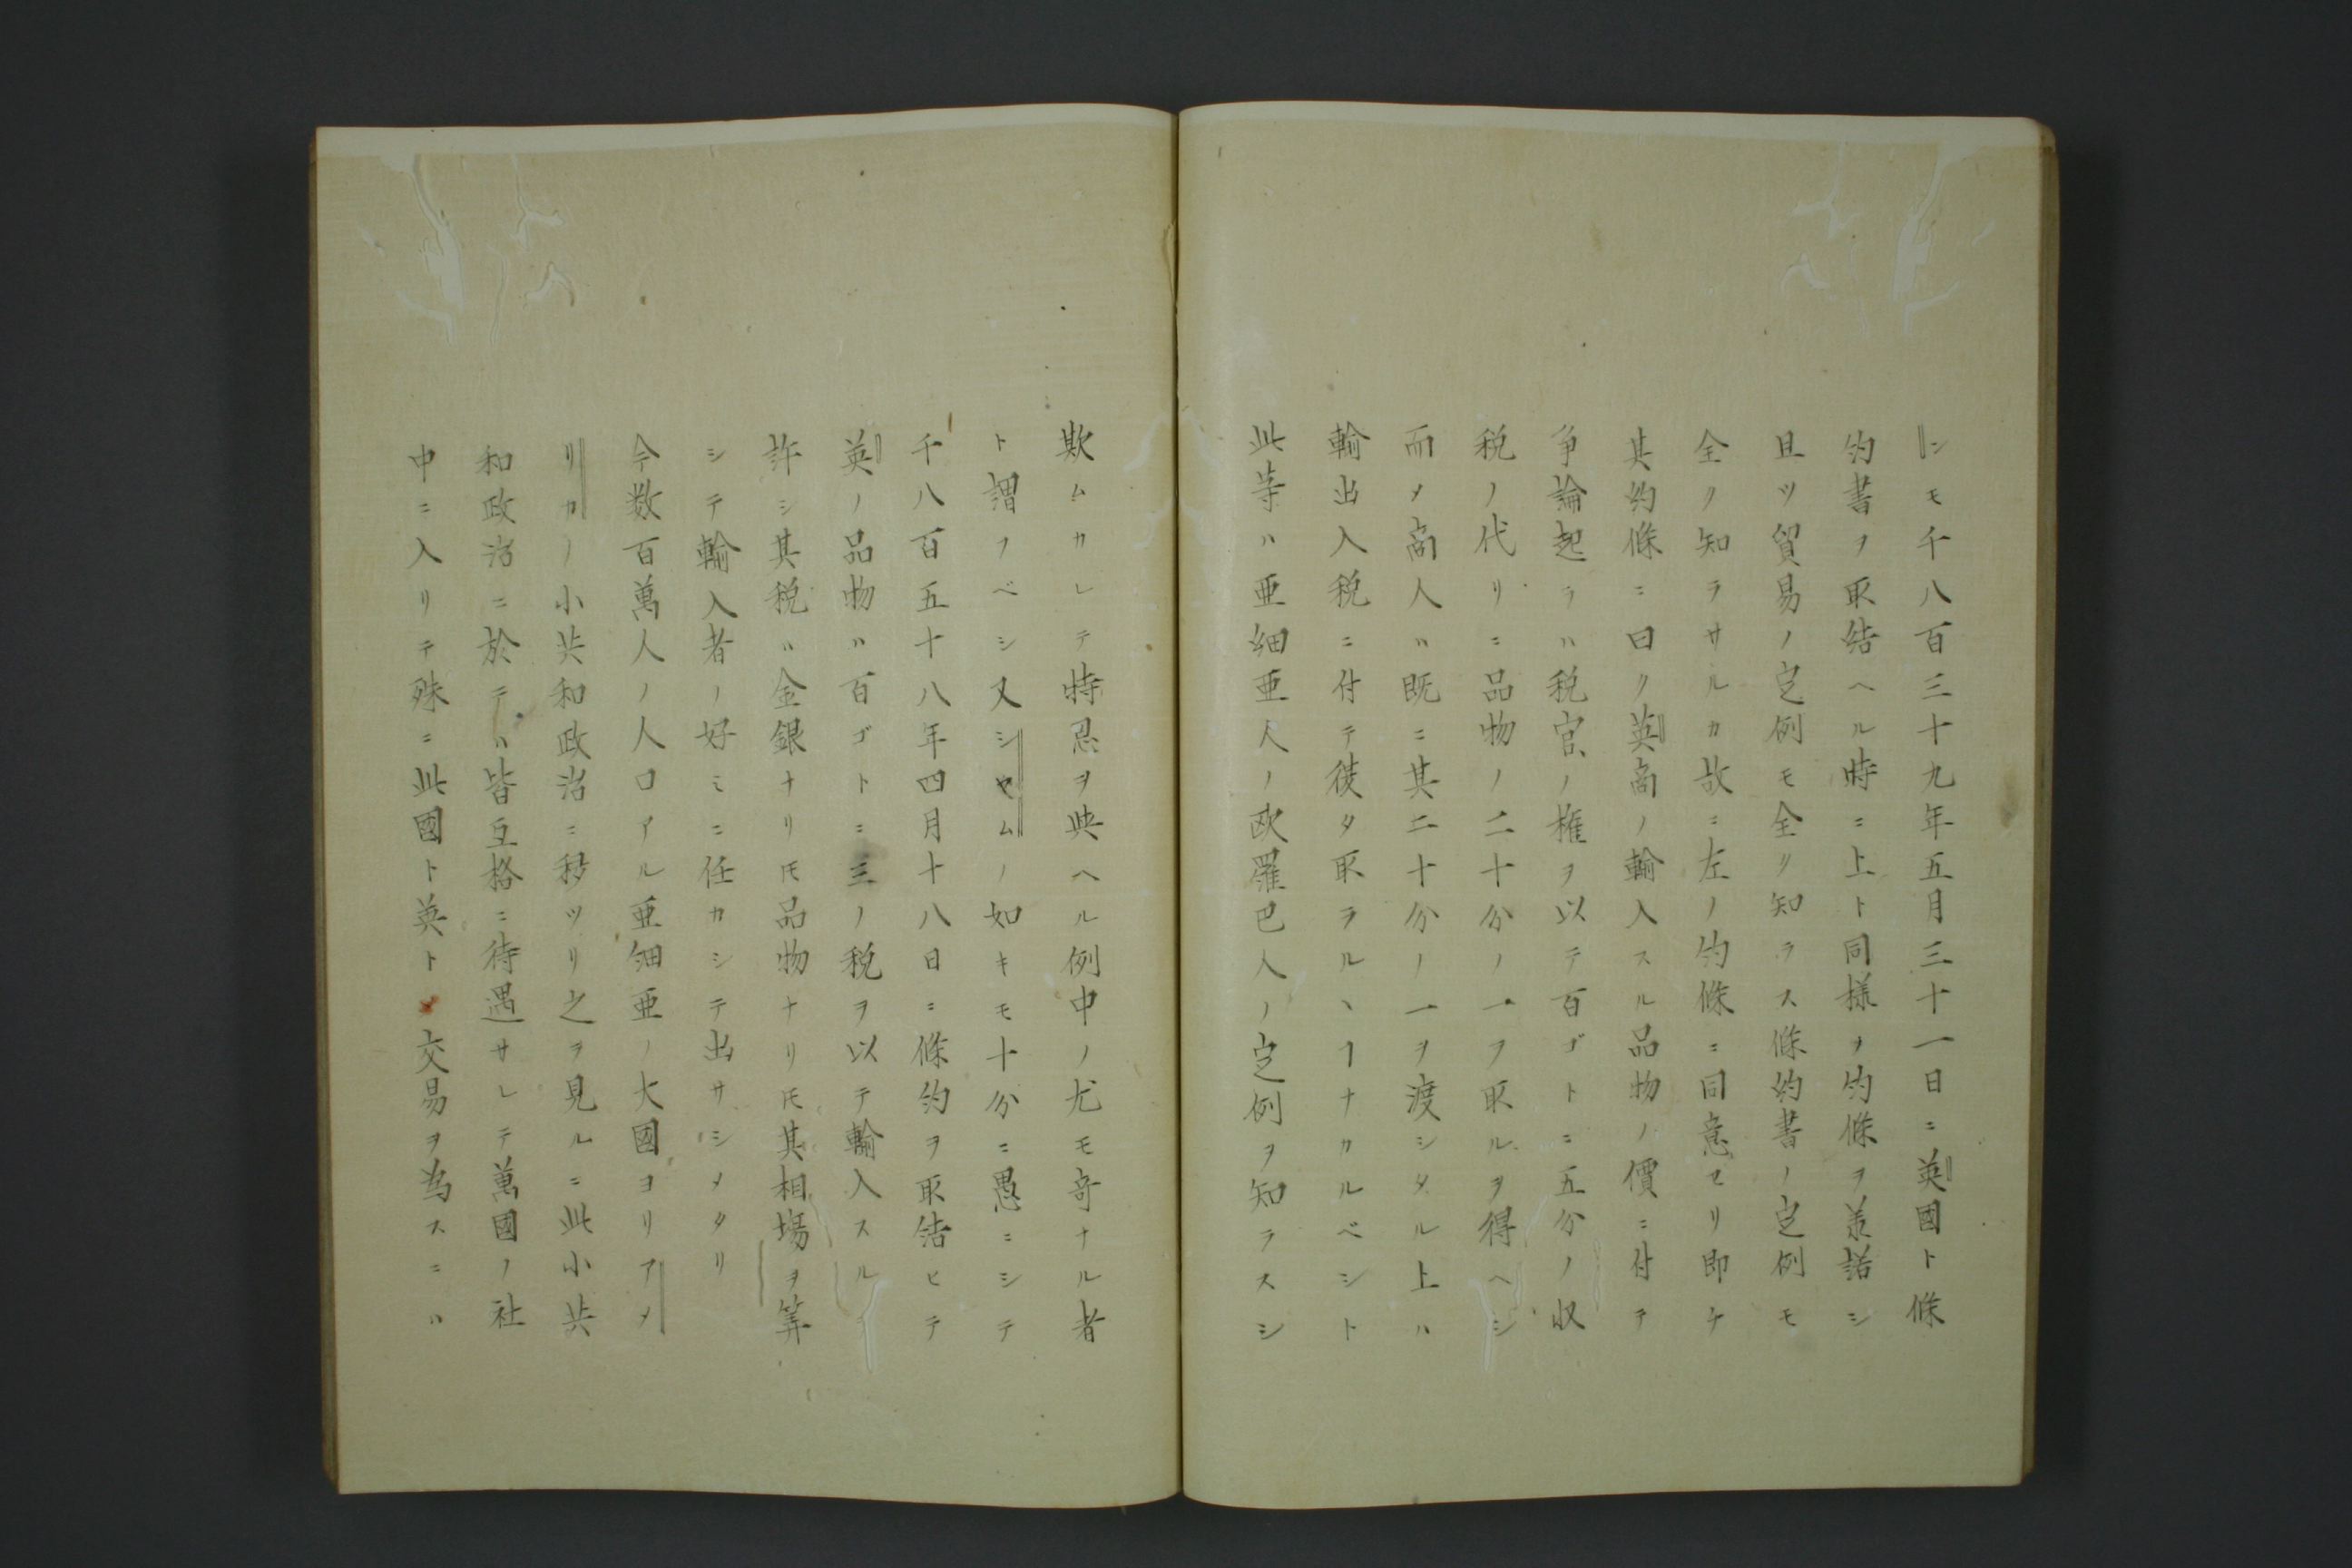 シモ千八百三十九年五月三十一日ニ英國ト條
約書ヲ取結ヘル時ニ上ト同様ノ約條ヲ差諾シ
且ツ貿易ノ定例モ全ク知ラス條約書ノ定例モ
全ク知ラサルカ故ニ左ノ約條ニ同意セリ即チ
其約條ニ曰ク英商ノ輸入スル品物ノ價ニ付テ
争論起ラハ税官ノ権ヲ以テ百ゴトニ五分ノ収
税ノ代リニ品物ノ二十分ノ一ヲ取ルヲ得ヘシ
而メ商人ハ既ニ其二十分ノ一ヲ渡シタル上ハ
輸出入税ニ付テ復タ取ラルヽヿナカルベシト
此等ハ亜細亜人ノ欧羅巴人ノ定例ヲ知ラスシ
欺ムカレテ特恩ヲ与ヘル例中ノ尤モ奇ナル者
ト謂フベシ又シヤムノ如キモ十分ニ愚ニシテ
千八百五十八年四月十八日ニ條約ヲ取結ヒテ
英ノ品物ハ百ゴトニ三ノ税ヲ以テ輸入スルヲ
許シ其税ハ金銀ナリ𪜈品物ナリ𪜈其相場ヲ算
シテ輸入者ノ好ミニ任カシテ出サシメタリ
今数百萬人ノ人口アル亜細亜ノ大國ヨリアメ
リカノ小共和政治ニ移ツリ之ヲ見ルニ此小共
和政治ニ於テハ皆互格ニ待遇サレテ萬國ノ社
中ニ入リテ殊ニ此國ト英ト交易ヲ為スニハ